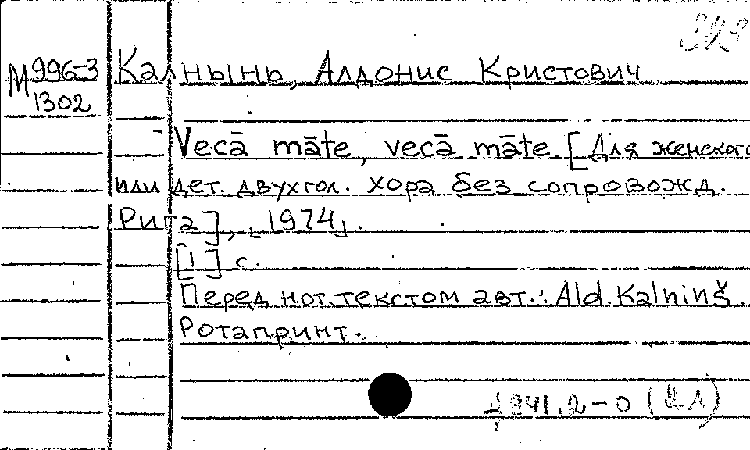 М 996-3
1302
Калнынь, Алдонис Кристович
Vecā māte, vecā māte [Для женского
или дет. двухгол. хора без сопровожд.
Рига], 1974.
[1] с.
Перед нот. текстом авт.: Ald. Kalninš.
Ротапринт.